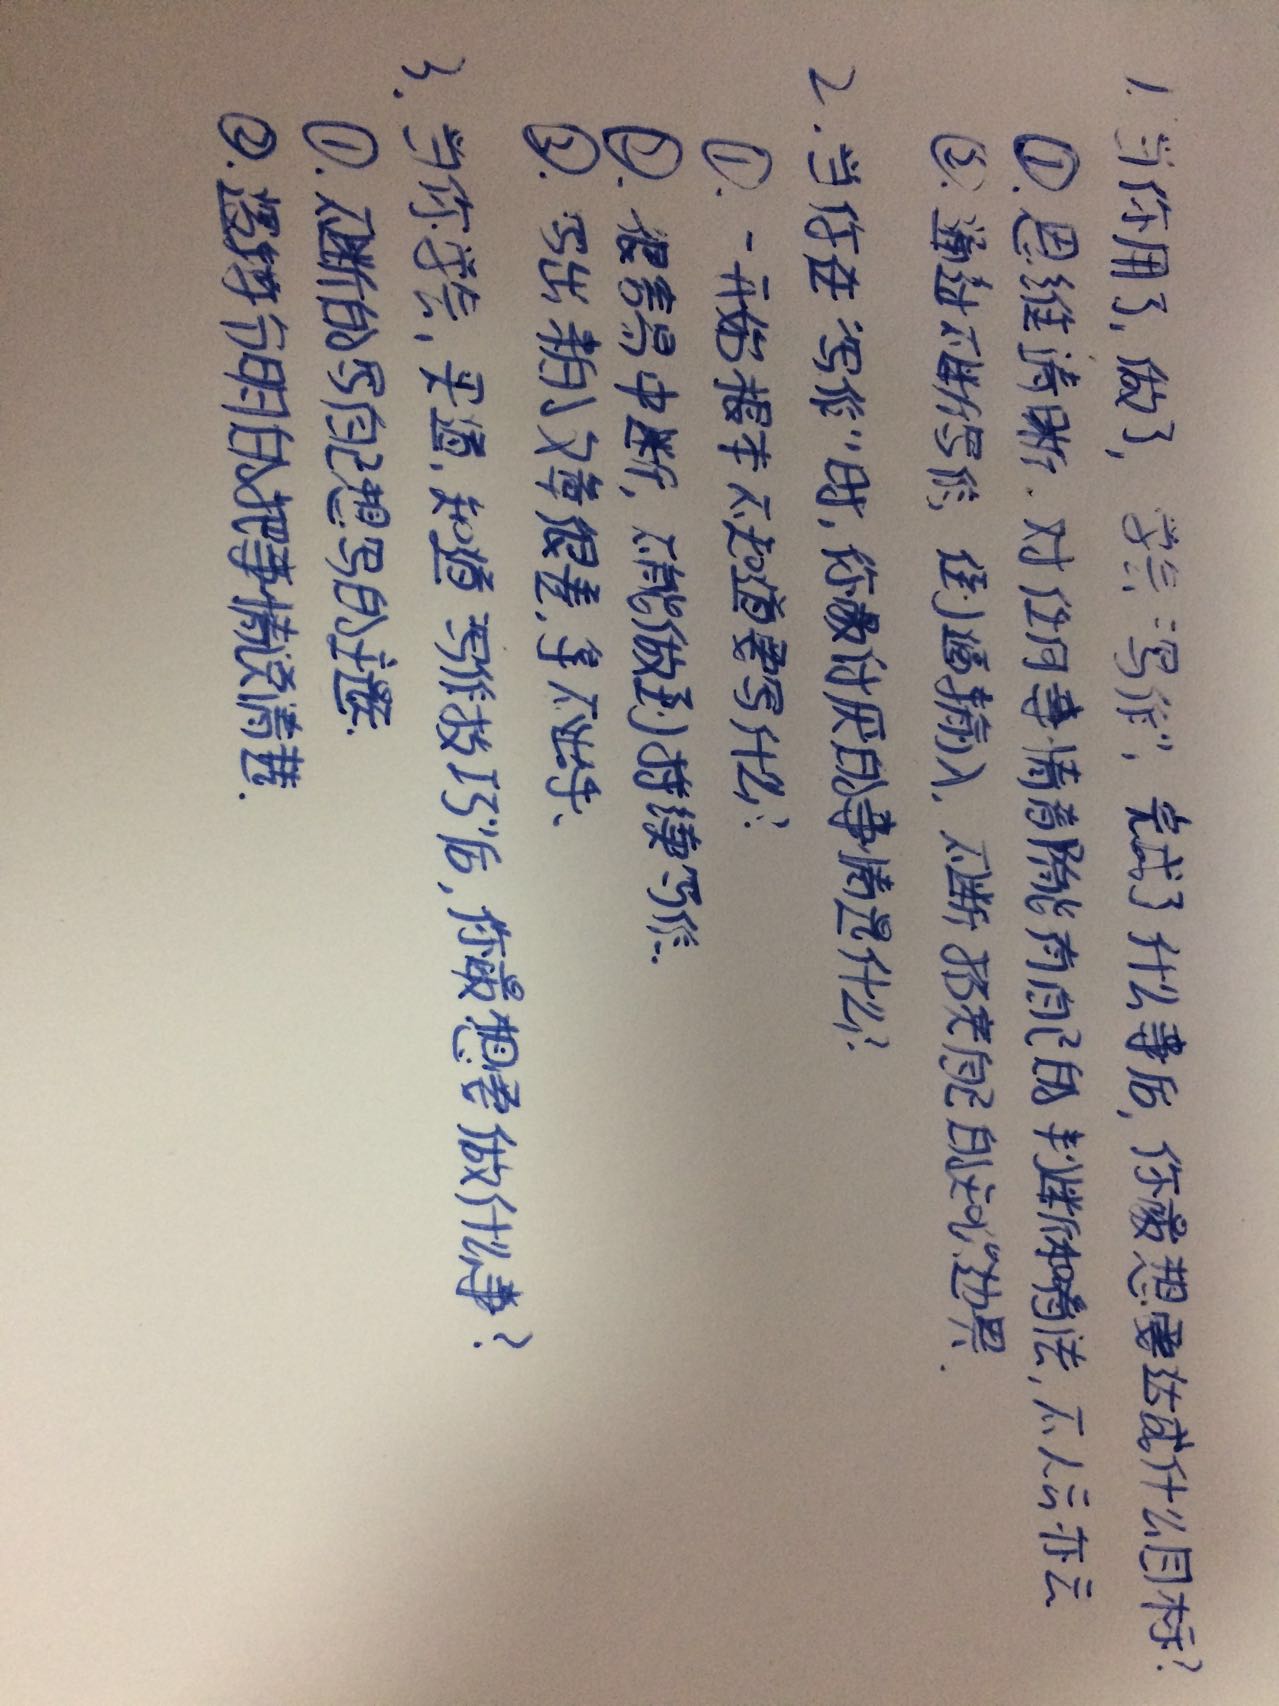 1. 当你用了,做了,学完“写作”,完成了什么事后,你最想要达成什么目标?
①. 思维清晰. 对任何事情都能有自己的判断和看法,不人云亦云
②. 通过不断写作, 倒逼输入. 不断扩充自己的认识边界.
2. 当你在“写作”时,你最讨厌的事情是什么?
①. 一开始根本不知道要写什么?
②. 很容易中断, 不能做到持续写作.
③. 写出来的文章很差. 角度不独特.
3. 当你学会, 买过, 知道“写作技巧”后, 你最想要做什么事?
①. 不断的写自己想写的主题.
②. 逻辑分明的把事情说清楚.